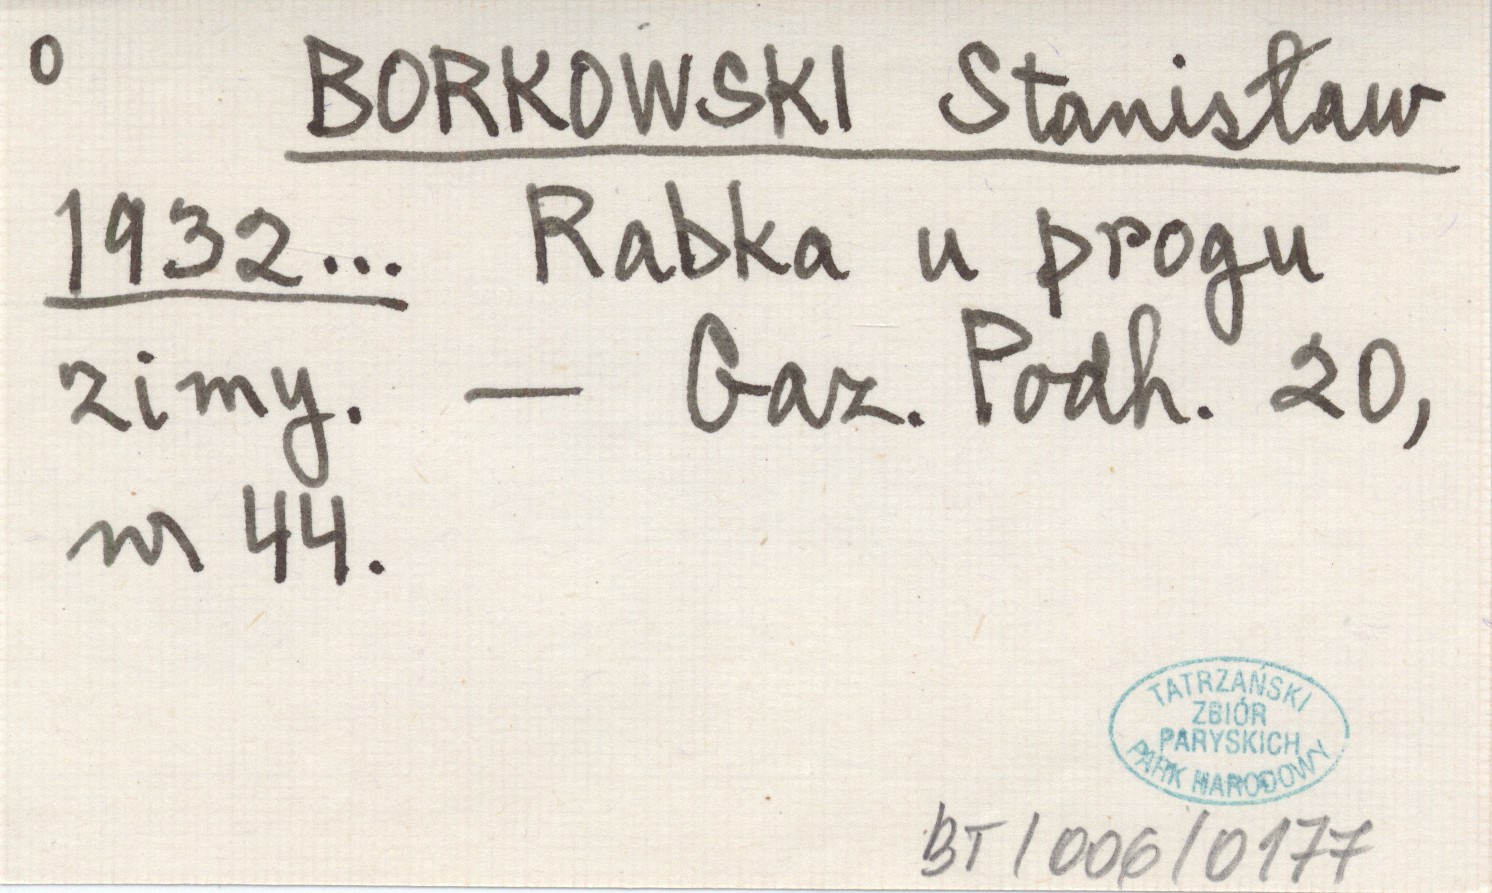 o BORKOWSKI Stanisław
1932... Rabka u progu
zimy. — Gaz. Podh. 20,
nr 44.
TATRZAŃSKI
ZBIÓR
PARYSKICH
PARK NARODOWY
BT/006/0177